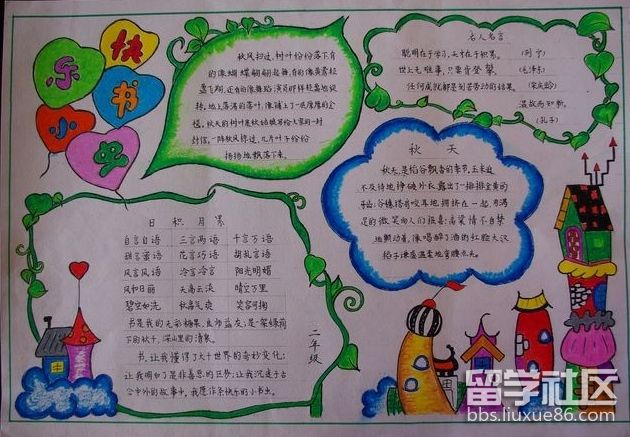 快乐书小学
秋风扫过,树叶纷纷落下,有
的像蝴蝶翩翩起舞,有的像黄莺轻
盈飞翔,还有的像舞蹈演员那样轻盈地旋
转。地上落满的落叶,像铺上了一层厚厚的金
毯。秋天的树叶是秋姑娘写给大家的一封
封信,一阵秋风掠过,几片叶子纷纷
扬扬地飘落下来。
名人名言
聪明在于学习,天才在于积累。 (列宁)
世上无难事,只要肯登攀。 (毛泽东)
任何成就都是刻苦劳动的结果。 (宋庆龄)
温故而知新。
(孔子)
秋天
秋天,是稻谷飘香的季节,玉米迫
不及待地挣破外衣,露出了一排排金黄的
谷穗拥挤在一起,
的微笑向人们报喜;高粱情不自禁
地颤动着,像喝醉了酒的红脸大汉
日积月累
自言自语 三言两语 千言万语
甜言蜜语 花言巧语 胡乱言语
风言风语 冷言冷言 阳光明媚
风和日丽 天高云淡 晴空万里
碧空如洗 秋高气爽 笑容可掬
书是我的无彩糖果,良师益友,是一架绿荫
下的秋千,深山里的清泉。
书,让我懂得了大千世界的奇妙变化;
让我明白了是非善恶的区势;让我沉迷于古
今中外的故事中,我愿作条快乐的小书虫。
二年级
留学社区
bbs.liuxue86.com